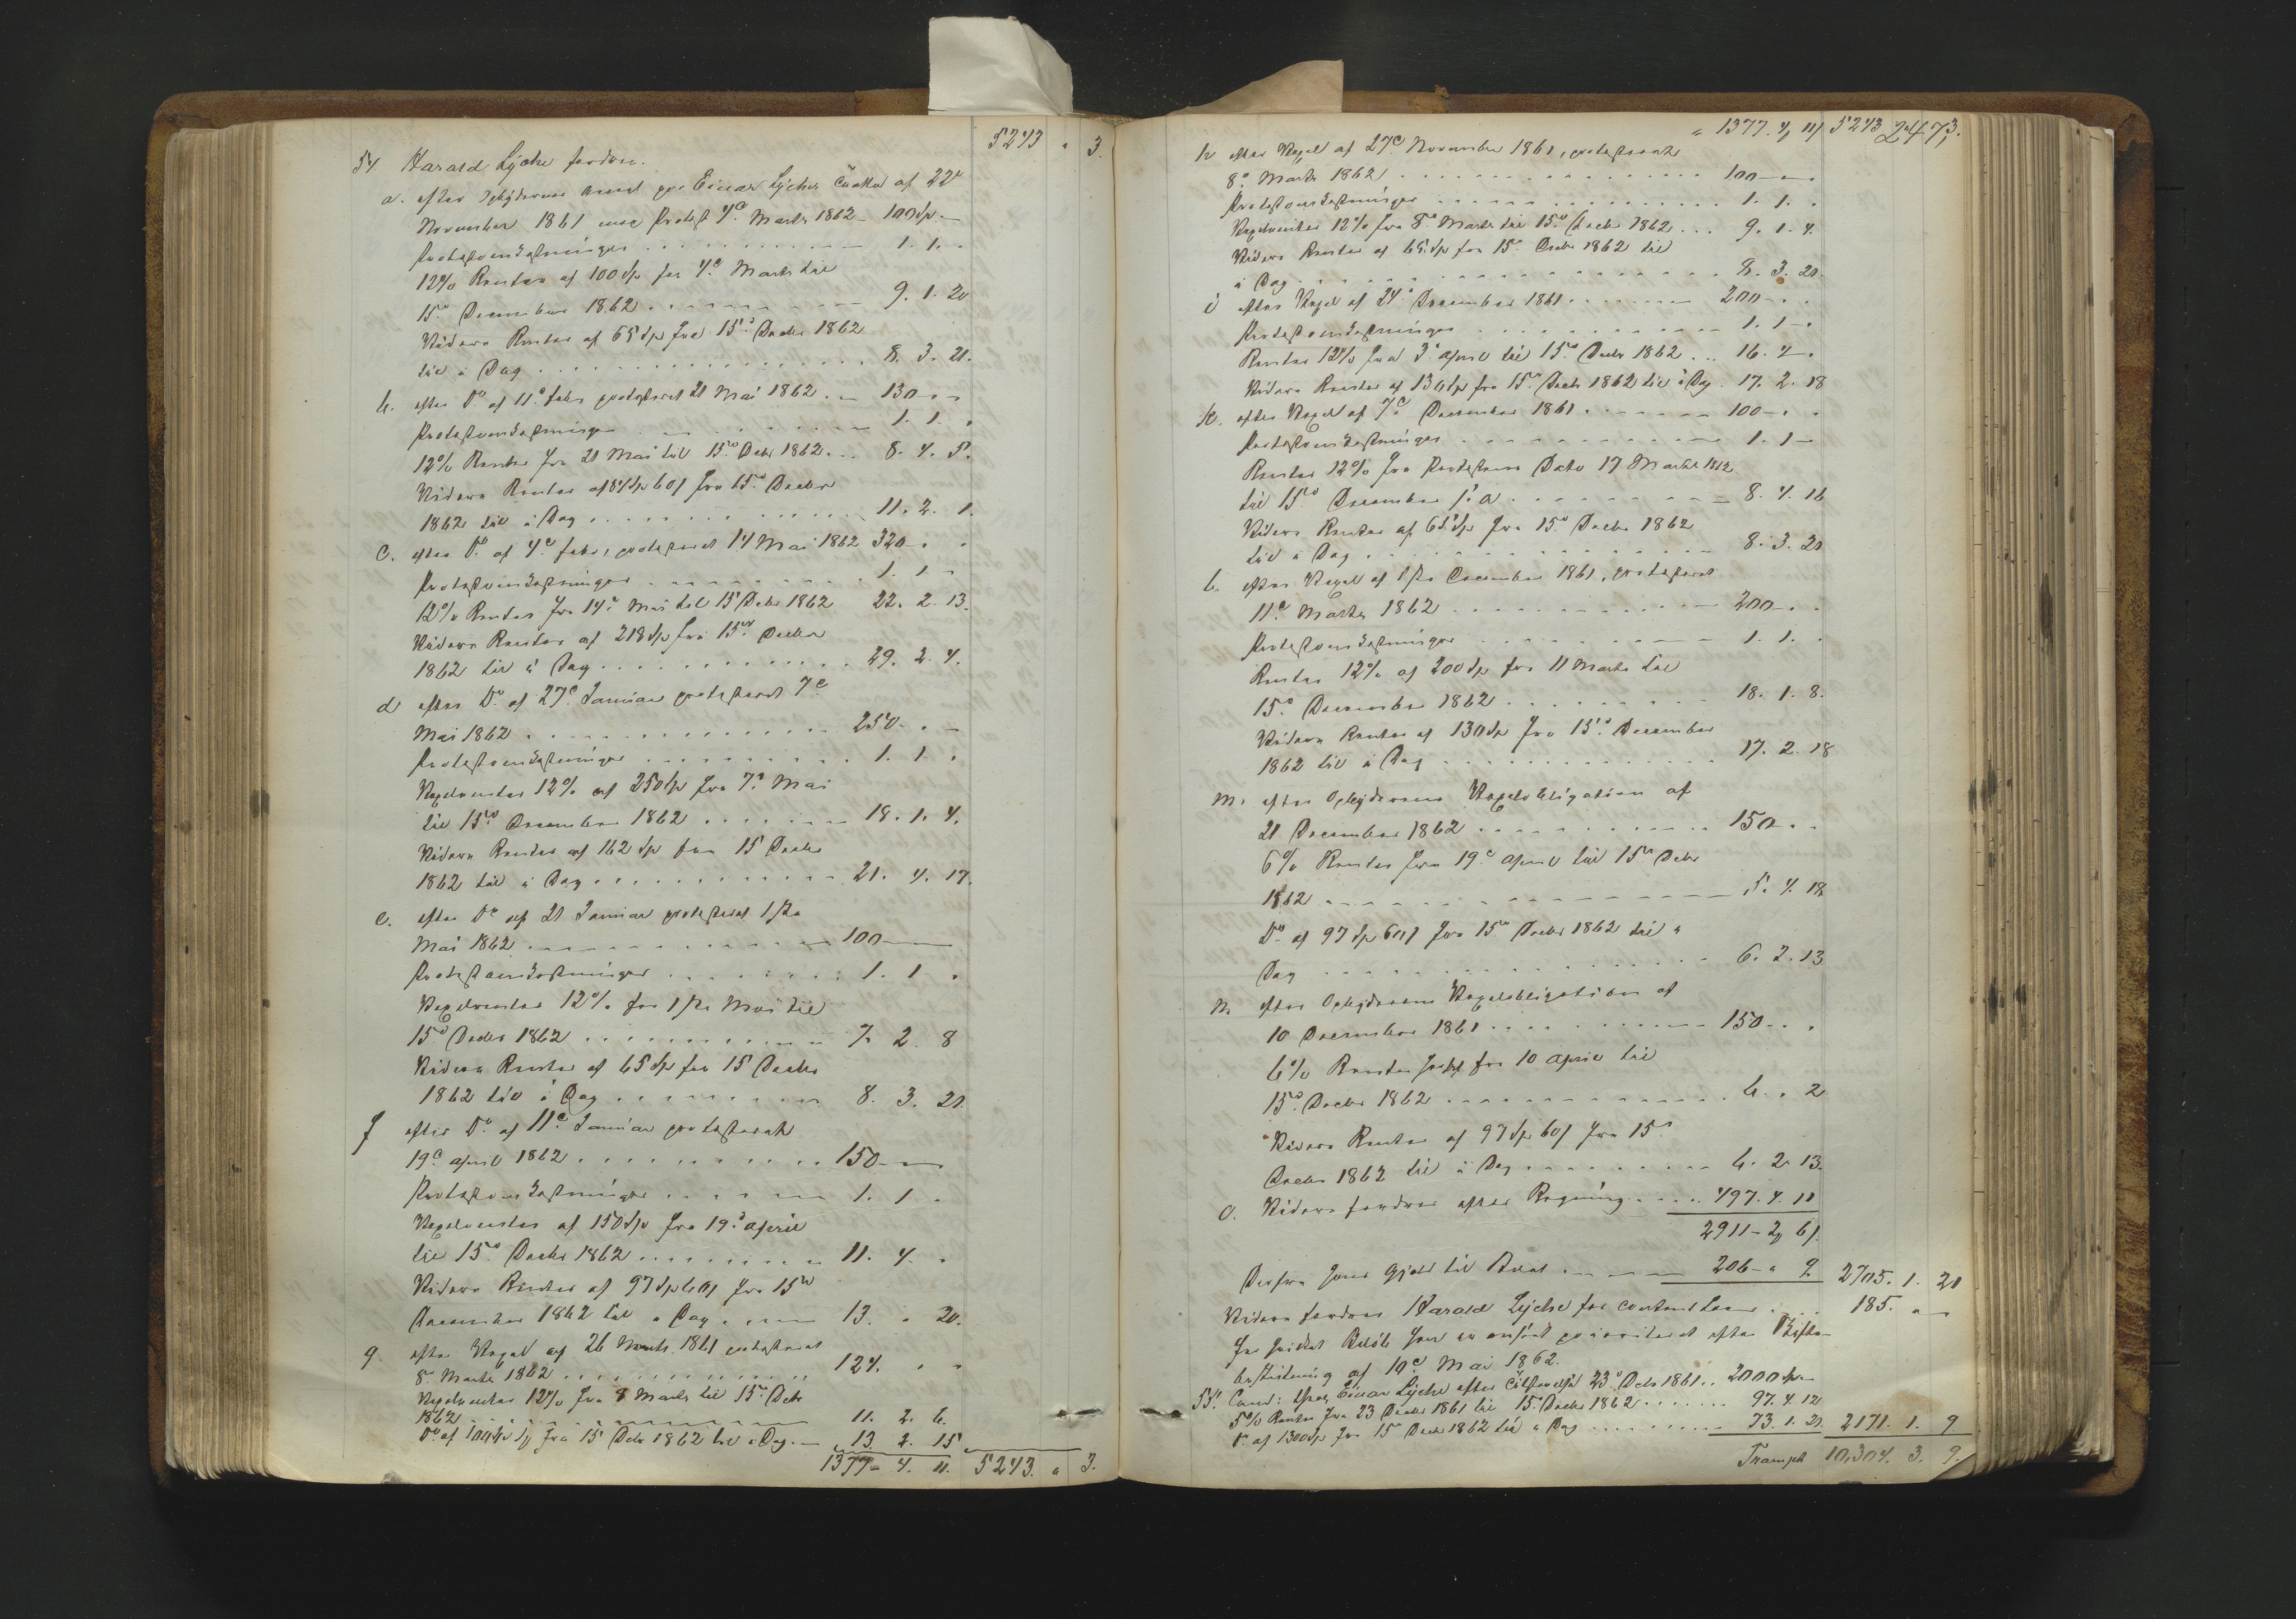 5243 " 3.
54 Harald Lyche fordrer.
a. efter Opbyderens samt Einar Lyches af 22d
November 1861 Protest 4de Marts 1862 – 100 Sp. –
Protestomkostninger . . . . 1. 1. -
12% Renter af 100 Sp fra 4de Marts til
15de December 1862 . . . . 9. 1. 20
Videre Renter af 65 Sp fra 15de Decbr 1862
til i Dag . . . . 8. 3. 21.
b. efter Do af 11e Febr protesteret 21 Mai 1862 . – 130 - -
Protestomkostninger . . . . 1. 1. .
12% Renter fra 21 Mai til 15de Decbr 1862 . . . 8. 4. 5.
Videre Renter af 84 Sp 60 s fra 15de Decbr
1862 til i Dag . . . . 11. 2. 1.
c. efter Do af 4de Febr, protesteret 14 Mai 1862 320 - . .
Protestomkostninger . . . . 1. 1 -
12% Renter fra 14e Mai til 15 Decbr 1862 22. 2. 13.
Videre Renter af 218 Sp fra 15de Decbr
1862 til i Dag . . . . 29. 2. 4.
d efter Do af 27de Januar protesteret 7de
Mai 1862 . . . . 250 - . -
Protestomkostninger . . . . 1. 1. .
Vexelrenter 12% af 250 Sp fra 7de Mai
til 15de December 1862 . . . . 18. 1. 4.
Videre Renter af 162 Sp fra 15 Decbr
1862 til i Dag . . . . 21. 4. 17.
e. efter Do af 21 Januar protesteret 1ste
Mai 1862 . . . . 100 –
Protestomkostninger . . . . 1. 1 .
Vexelrenter 12% fra 1ste Mai til
15de Decbr 1862 . . . . 7. 2. 8
Videre Renter af 65 Sp fra 15 Decbr
1862 til i Dag . . . . 8. 3. 21.
f efter Do af 11e Januar protesteret
19de April 1862 . . . . 150 - –
Protestomkostninger . . . . 1. 1 .
Vexelrenter af 150 Sp fra 19de April
til 15de Decbr 1862 . . . . 11. 4. .
Videre Renter af 97 Sp 60 s fra 15de
December 1862 til i Dag . . . . 13. " 20.
g. efter Vexel af 26 1861 protesteret
8de Marts 1862 . . . . 124. . -
Vexelrenter 12% fra 8 Marts til 15de Decbr
1862 . . . . 11. 2. 6.
Do af fra 15 Decbr 1862 til i Dag – 13. 2. 15
1377 – 4. 11. 5243. " 3.
" 1377. 4. 11 5243 " 3.
247
h efter Vexel af 27de November 1861, protesteret
8de Marts 1862 . . . . 100 – .
Protestomkostninger . . . . 1. 1. .
Vexelrenter 12% fra 8de Marts til 15de Decbr 1862 . . . 9. 1. 4.
Videre Renter af 65 Sp fra 15de Decbr 1862 til
i Dag . . . . 8. 3. 21.
i efter Vexel af 24de December 1861 . . . . 200 - . .
Protestomkostninger . . . . 1. 1 - .
Renter 12% fra 3de April til 15de Decbr 1862 . . 16. 4. .
Videre Renter af 130 Sp fra 15de Decbr 1862 til i Dag . 17. 2. 18
k. efter Vexel af 7de December 1861 . . . . 100 - . .
Protestomkostninger . . . . 1. 1 –
Renter 12% fra Protestens Dato 17 Marts 1862
til 15de December s. a . . . . 8. 4. 16
Videre Renter af 65 Sp fra 15de Decbr 1862
til i Dag . . . . 8. 3. 21
l. efter Vexel af 1ste December 1861, protesteret
11de Marts 1862 . . . . 200 - . .
Protestomkostninger . . . . 1. 1. .
Renter 12% af 200 Sp fra 11 Marts til
15de December 1862 . . . . 18. 1. 8.
Videre Renter af 130 Sp fra 15de December
1862 til i Dag . . . . 17. 2. 18
m. efter Opbyderens Vexelobligation af
21 December 1862 . . . . 150 - . .
6% Renter fra 19de April til 15de Decbr
1862 . . . . 5. 4. 18
Do af 97 Sp 60 s fra 15de Decbr 1862 til i
Dag . . . . 6. 2. 13
n. efter Opbyderens Vexelobligation af
10 December 1861 . . . . 150 - . .
6% Renter fra 10 April til
15de Decbr 1862 . . . . 6. . 2
Videre Renter af 97 Sp 60 s fra 15de
Decbr 1862 til i Dag . . . . 6. 2. 13.
o. Videre fordres efter Regning . . . . 497. 4. 11
2911 – 2. 6
Derfra hans Gjæld til Boet . – 206 – " 9 2705. 1. 21
Videre fordrer Harald Lyche for contant Laan . . . 185. " –
for hvilket Beløb han er anseet prioriteret efter Skifte-
beslutning af 10de Mai 1862.
55. Cand: Einar Lyche efter Tilstaaelse 23de Decbr 1861 . . 2000 Sp –
5% Renter fra 23 Decbr 1861 til 15de Decbr 1862 . . . . 97. 4. 12
Do af 1300 Sp fra 15de Decbr 1862 til i Dag . . . . 73. 1. 21. 2171. 1. 9
Transport 10,304. 3. 9.